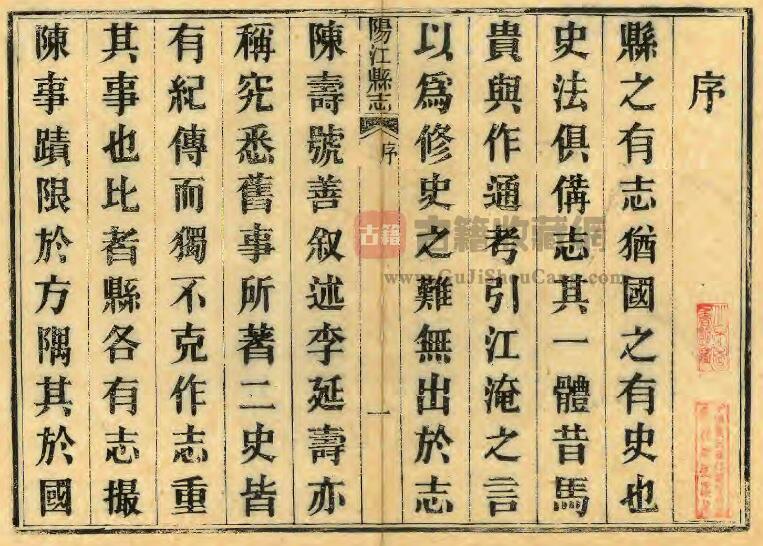 序
縣之有志猶國之有史也
史法俱備志其一體昔馬
貴與作通考引江淹之言
以爲修史之難無出於志
陽江縣志 序 一
陳壽號善叙述李延壽亦
稱究悉舊事所著二史皆
有紀傳而獨不克作志重
其事也比者縣各有志撮
陳事蹟限於方隅其於國
古籍
古籍收藏網
www.GuJiShouCang.com